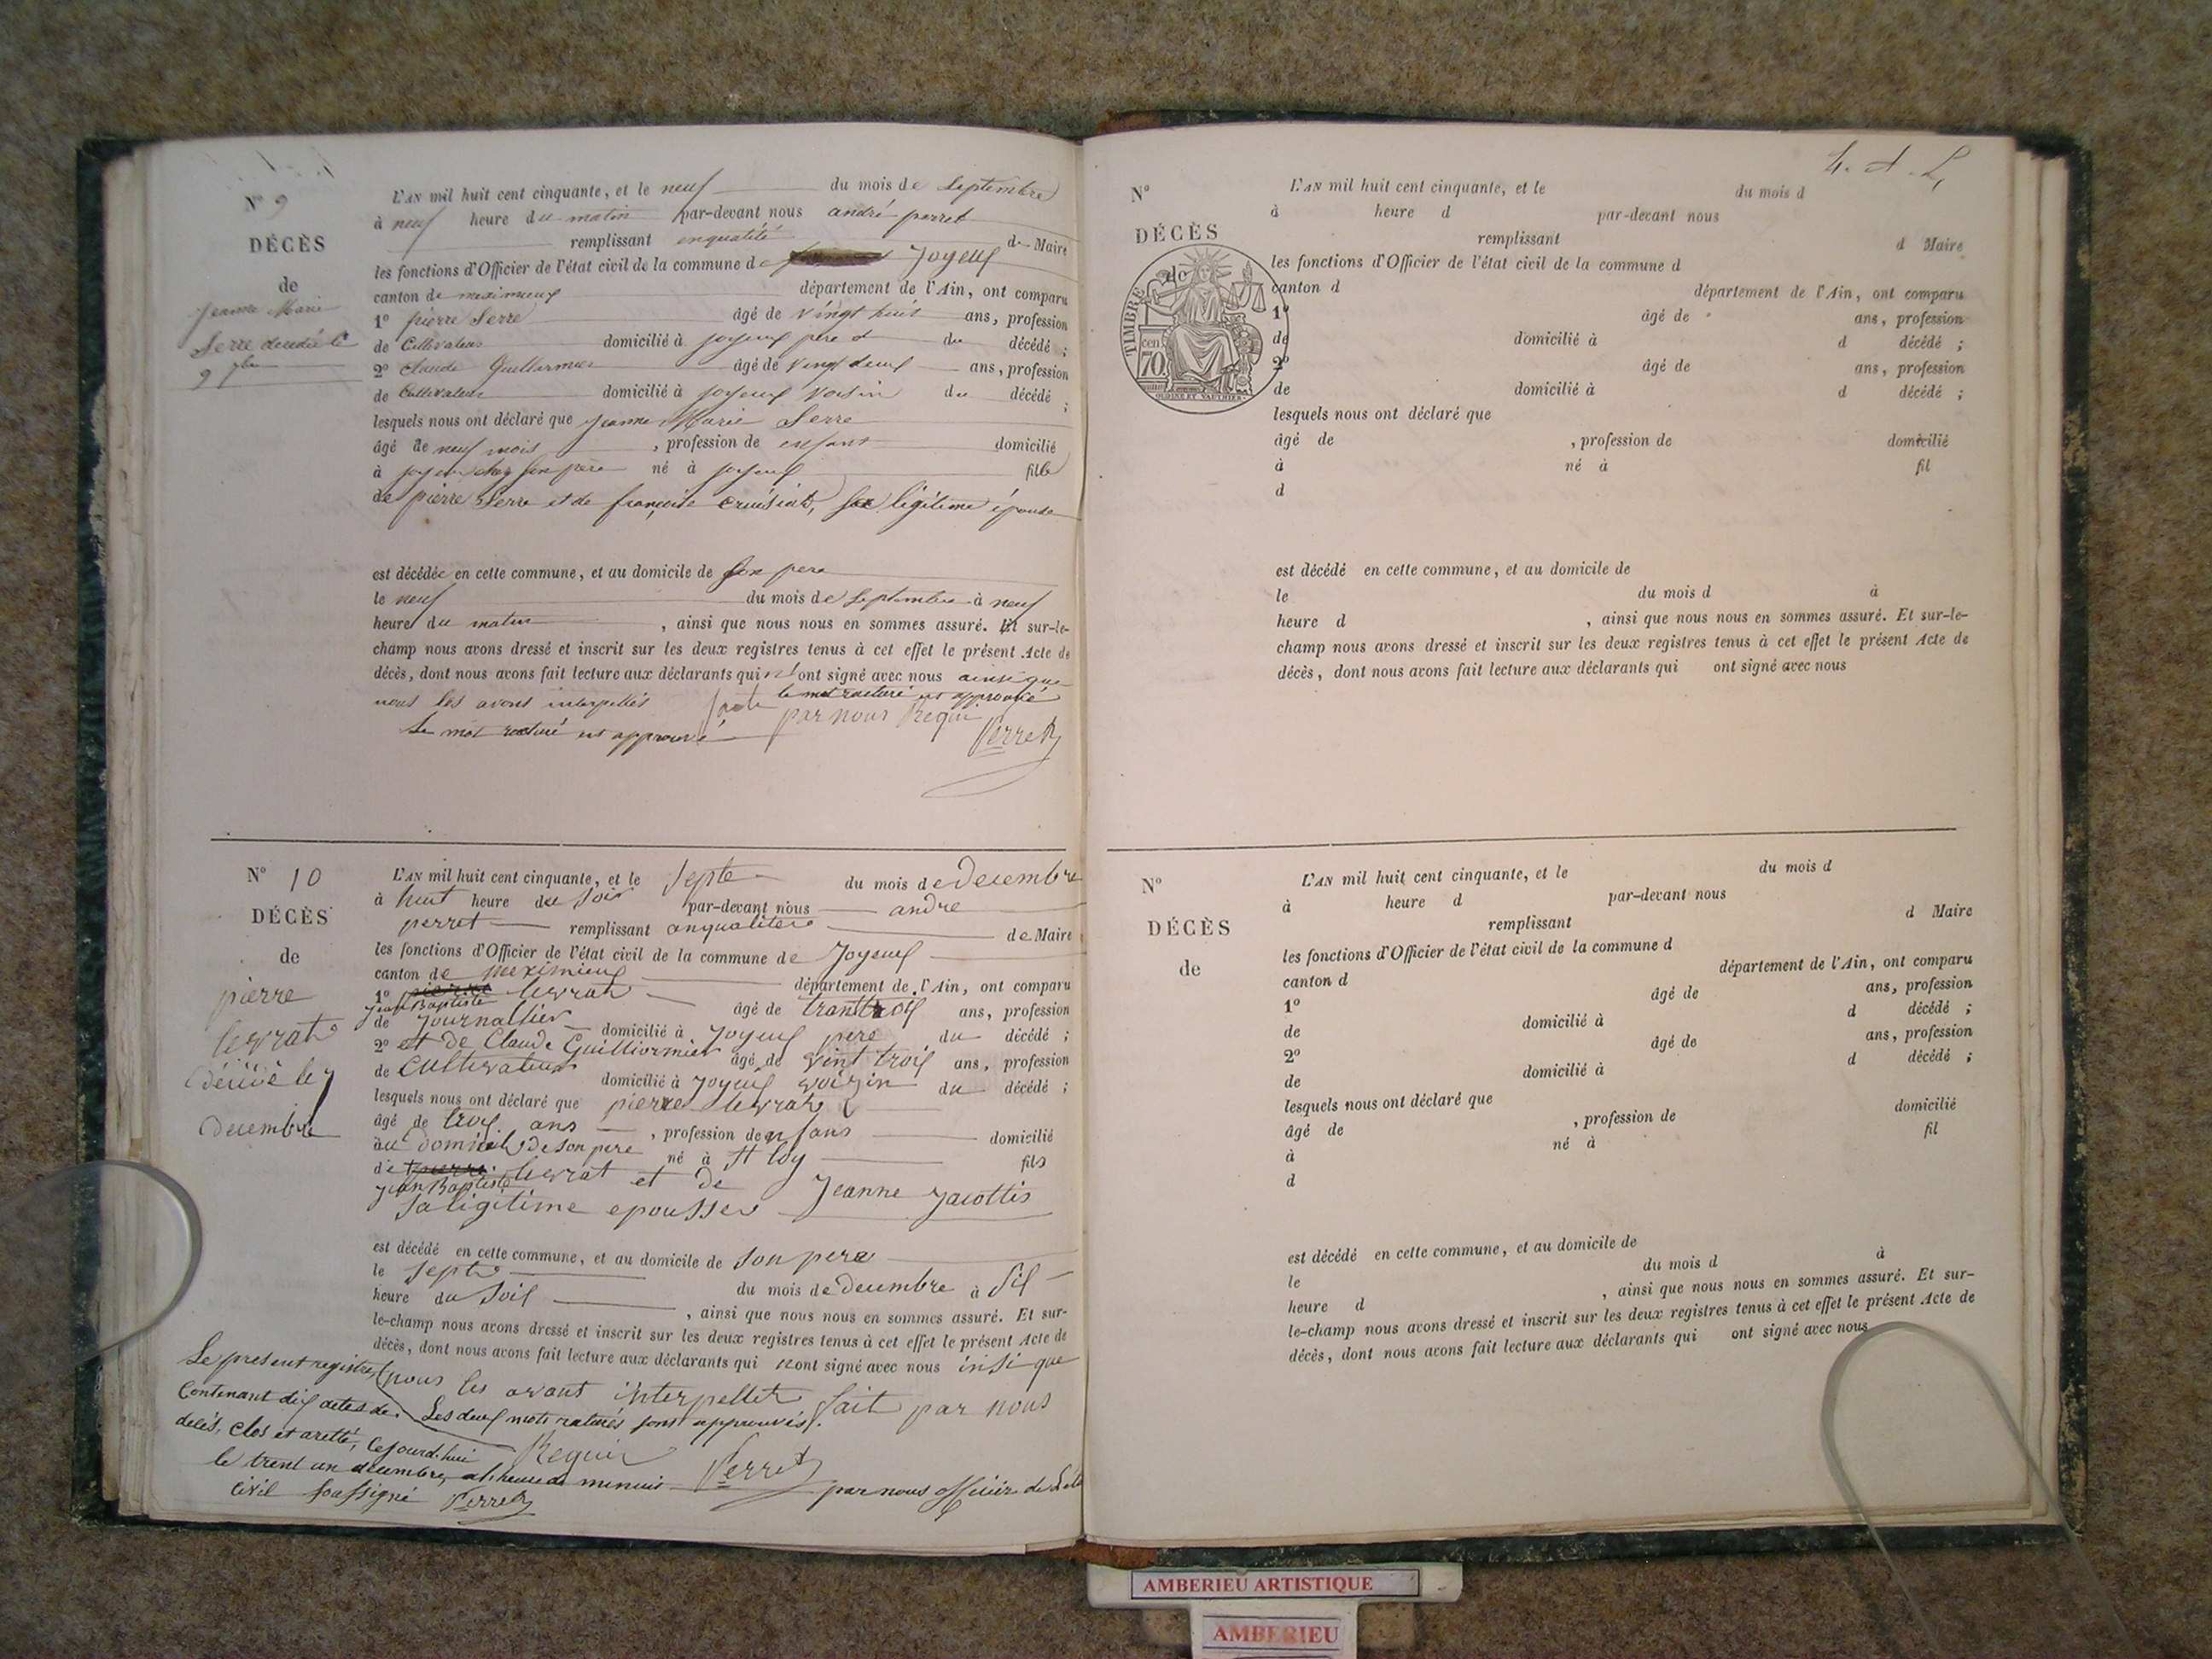 N° 9
DÉCÈS
de
Jeanne Marie
Serre decedée le
9 7bre
L'AN mil huit cent cinquante, et le neuf du mois de Septembre
à neuf heure du matin par-devant nous andré perret
remplissant enqualité de Maire
les fonctions d'Officier de l'état civil de la commune de Joyeux
canton de meximieux département de l'Ain, ont comparu
1° pierre Serre âgé de vingt huit ans, profession
de Cultivateur domicilié à joyeux père du décédé ;
2° Claude Guillermier âgé de vingt deux ans, profession
de Cultivateur domicilié à joyeux voisin du décédé ;
lesquels nous ont déclaré que jeanne Marie Serre
âgé de neuf mois , profession de enfant domicilié
à joyeux chez son père né à joyeux fille
de pierre Serre et de françoise légitime épouse
est décédée en cette commune, et au domicile de son pere
le neuf du mois de Septembre à neuf
heure du matin , ainsi que nous nous en sommes assuré. Et sur-le-
champ nous avons dressé et inscrit sur les deux registres tenus à cet effet le présent Acte de
décès, dont nous avons fait lecture aux déclarants qui n'ont signé avec nous ainsi que
nous les avons interpellés le mot raturé est approuvé
par nous Requin
Le mot raturé est approuvé Perret
N° 10
DÉCÈS
de
pierre
levrat
décédé le 7
decembre
L'AN mil huit cent cinquante, et le septe du mois de decembre
à huit heure du soir par-devant nous andre
perret remplissant anqualitere de Maire
les fonctions d'Officier de l'état civil de la commune de Joyeux
canton de meximieux département de l'Ain, ont comparu
1° pierre levrat âgé de ans, profession
jean Baptiste
de journallier domicilié à joyeux pere du décédé ;
2° et de Claude Guilliormier âgé de vint trois ans, profession
de cultivateur domicilié à joyeux voizin du décédé ;
lesquels nous ont déclaré que pierre levrat
âgé de trois ans , profession de enfans domicilié
au domicile de son pere né à St Eloy fils
de pierre levrat et de Jeanne Jacottis
jean Baptiste
sa ligitime epousse
est décédé en cette commune, et au domicile de son pere
le septe du mois de decembre à six
heure du soir , ainsi que nous nous en sommes assuré. Et sur-
le-champ nous avons dressé et inscrit sur les deux registres tenus à cet effet le présent Acte de
décès, dont nous avons fait lecture aux déclarants qui nont signé avec nous insi que
nous les avont interpellet fait par nous
Les deux mots raturés sont approuvés.
Requin Perret
Le present registre
Contenant dix actes de
décès, clos et aretté, cejourd'hui
le trent un decembre, à l'heure de minuit par nous officier de l'état
civil soussigné Perret
N°
DÉCÈS
de
TIMBRE
cen
70.
OUDINE ET VAUTHIER
L'AN mil huit cent cinquante, et le du mois d
à heure d par-devant nous
remplissant d Maire
les fonctions d'Officier de l'état civil de la commune d
canton d département de l'Ain, ont comparu
1° âgé de ans, profession
de domicilié à d décédé ;
2° âgé de ans, profession
de domicilié à d décédé ;
lesquels nous ont déclaré que
âgé de , profession de domicilié
à né à fil
d
est décédé en cette commune, et au domicile de
le du mois d à
heure d , ainsi que nous nous en sommes assuré. Et sur-le-
champ nous avons dressé et inscrit sur les deux registres tenus à cet effet le présent Acte de
décès, dont nous avons fait lecture aux déclarants qui ont signé avec nous
N°
DÉCÈS
de
L'AN mil huit cent cinquante, et le du mois d
à heure d par-devant nous
remplissant d Maire
les fonctions d'Officier de l'état civil de la commune d
canton d département de l'Ain, ont comparu
1° âgé de ans, profession
de domicilié à d décédé ;
2° âgé de ans, profession
de domicilié à d décédé ;
lesquels nous ont déclaré que
âgé de , profession de domicilié
à né à fil
d
est décédé en cette commune, et au domicile de
le du mois d à
heure d , ainsi que nous nous en sommes assuré. Et sur-
le-champ nous avons dressé et inscrit sur les deux registres tenus à cet effet le présent Acte de
décès, dont nous avons fait lecture aux déclarants qui ont signé avec nous
AMBERIEU ARTISTIQUE
AMBERIEU